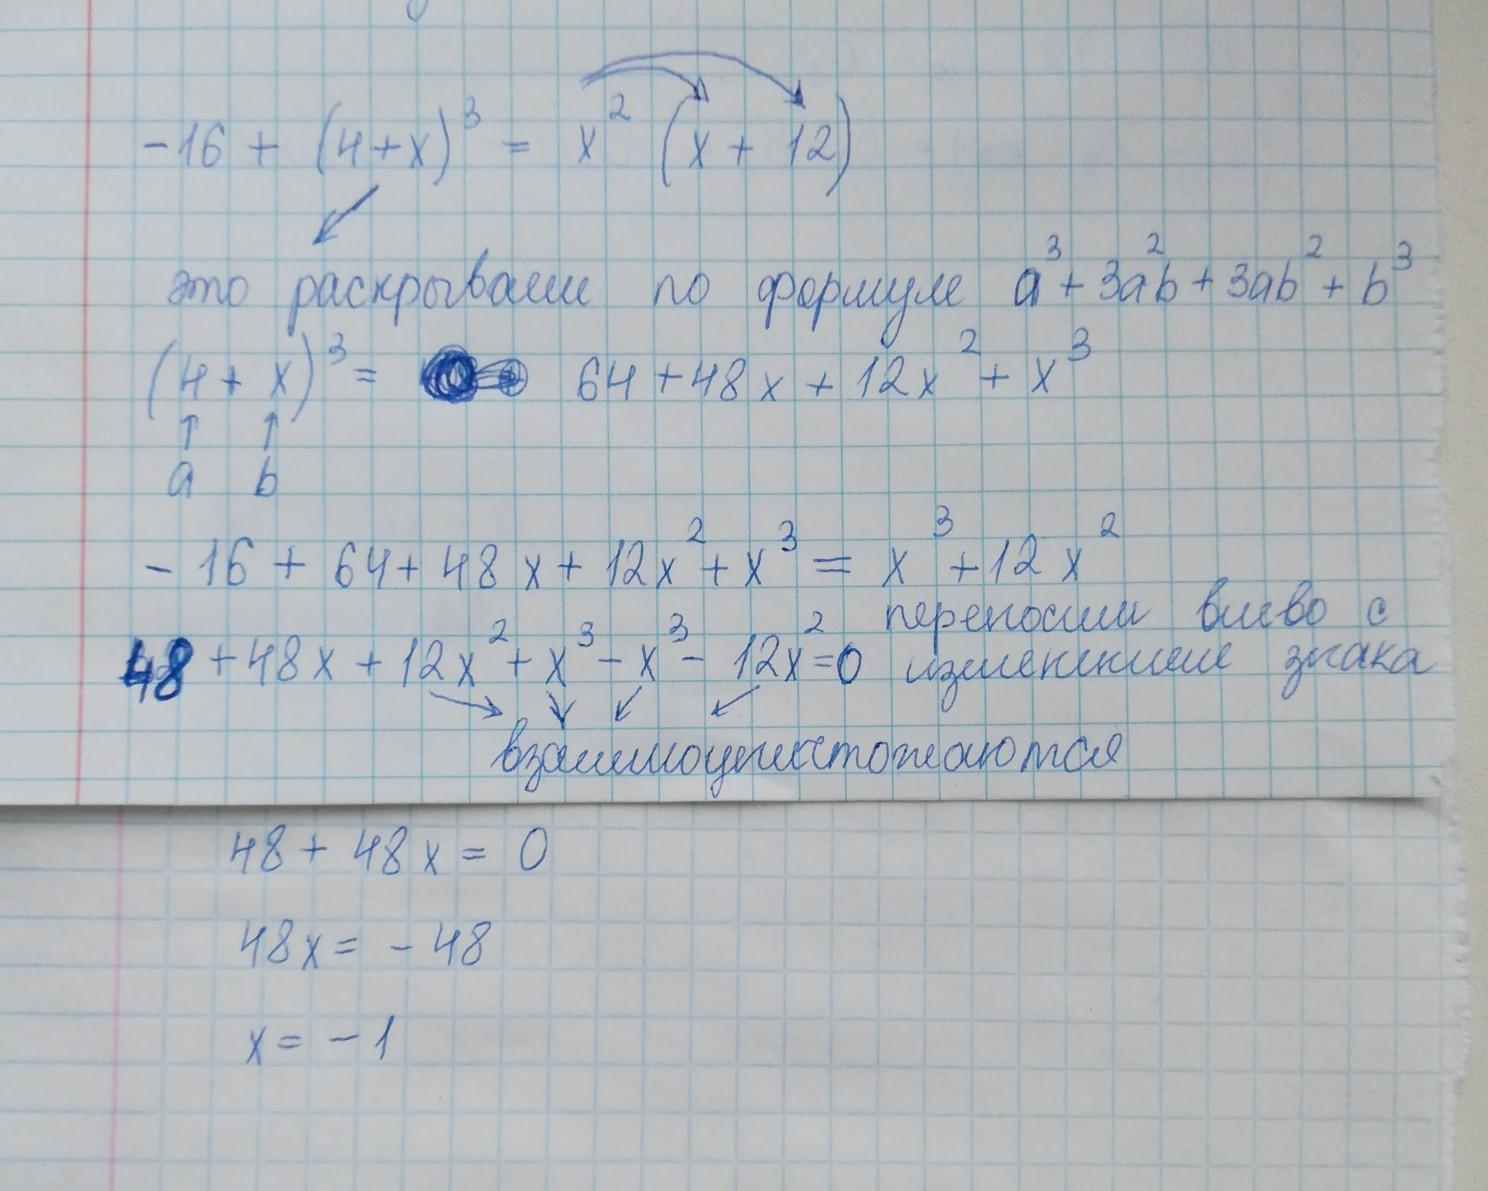 -16 + (4+x)³ = x² (x + 12)
это раскрываем по формуле a³ + 3a²b + 3ab² + b³
(4 + x)³ = 64 + 48x + 12x² + x³
a b
- 16 + 64 + 48x + 12x² + x³ = x³ + 12x²
переносим влево с
48 + 48x + 12x² + x³ - x³ - 12x² = 0 изменением знака
взаимоуничтожаются
48 + 48x = 0
48x = - 48
x = - 1